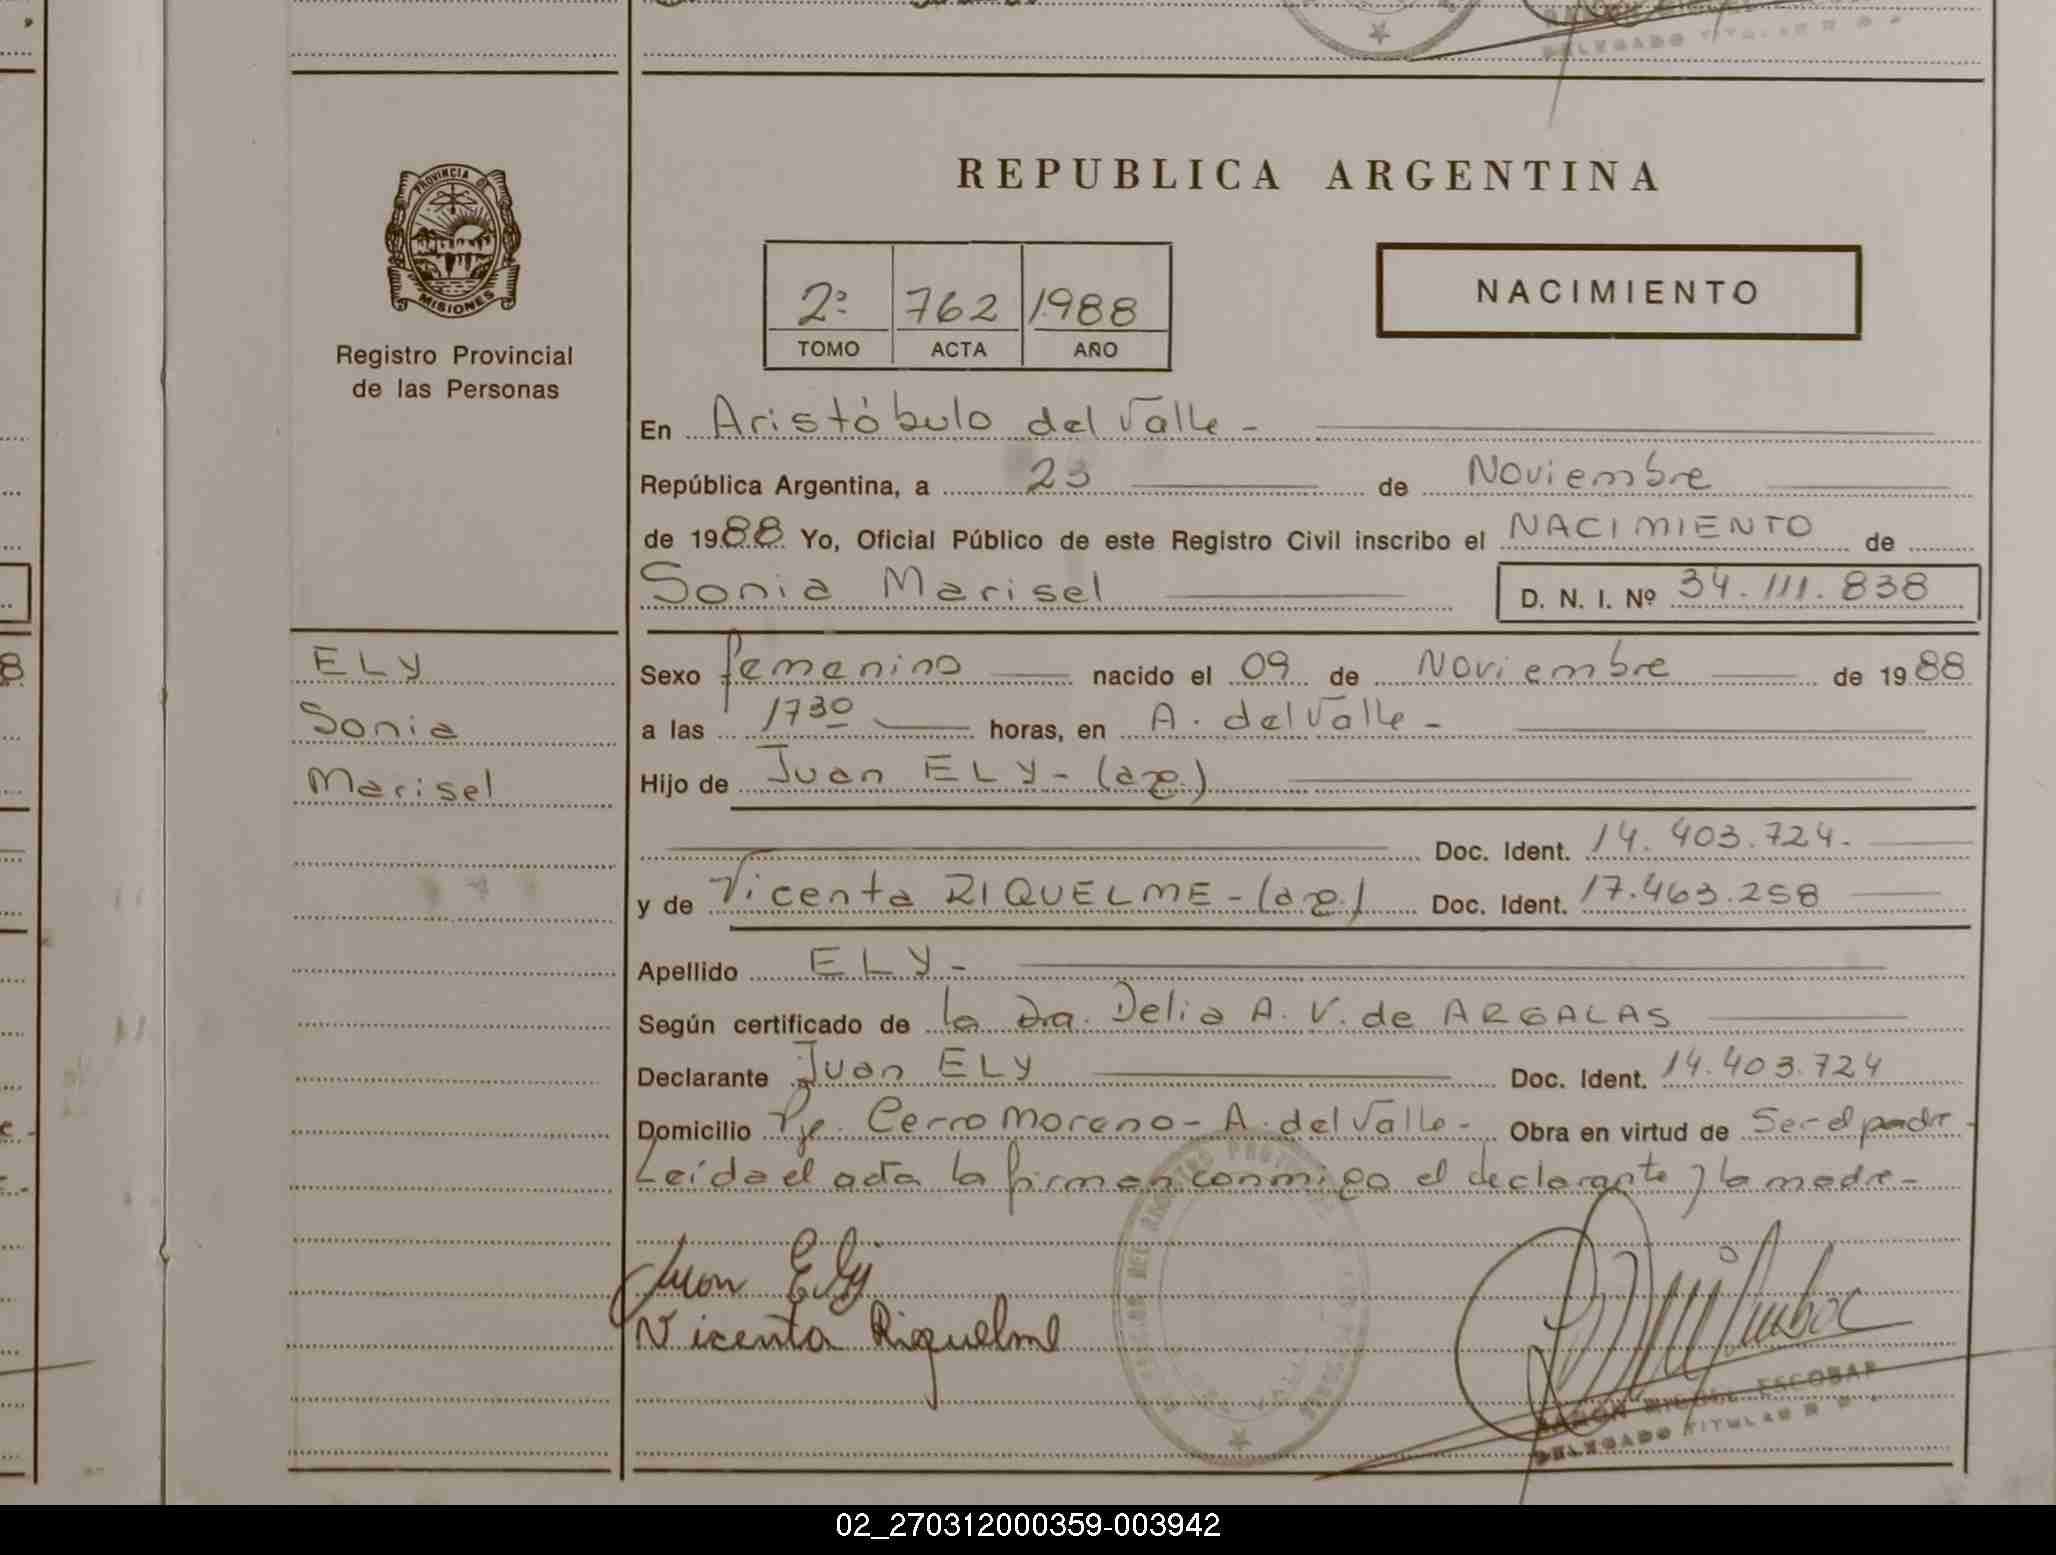 REPUBLICA ARGENTINA
PROVINCIA DE
MISIONES
Registro Provincial
de las Personas
2º 762 1988
TOMO ACTA AÑO
NACIMIENTO
En Aristóbulo del Valle -
República Argentina, a 23 de Noviembre
de 1988 Yo, Oficial Público de este Registro Civil inscribo el NACIMIENTO de
Sonia Marisel D. N. I. Nº 34.111.838
ELY
Sonia
Marisel
Sexo femenino nacido el 09 de Noviembre de 1988
a las 1730 horas, en A. del Valle -
Hijo de Juan ELY - (arg.)
Doc. Ident. 14.403.724.
y de Vicenta RIQUELME - (arg.) Doc. Ident. 17.463.258
Apellido ELY -
Según certificado de la Dra. Delia A. V. de ARGALAS
Declarante Juan ELY Doc. Ident. 14.403.724
Domicilio Pje. Cerro Moreno - A. del Valle - Obra en virtud de Ser el padre -
Leída el acta la firman conmigo el declarante y la madre -
Juan Ely
Vicenta Riquelme
RAMON MIGUEL ESCOBAR
DELEGADO TITULAR R. P.
02_270312000359-003942